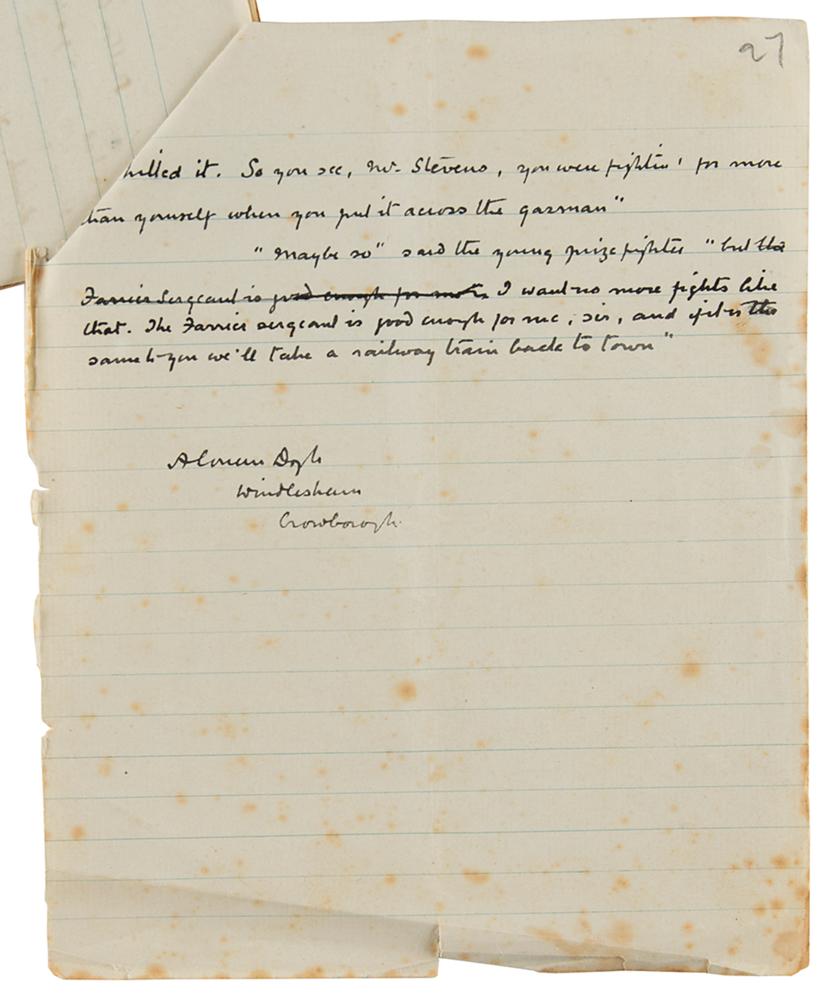 27
killed it. So you see, Mr. Stevens, you were fightin' for more
than yourself when you put it across the gasman"
"Maybe so" said the young prizefighter "but the
Farrier Sergeant is good enough for me I want no more fights like
that. The Farrier sergeant is good enough for me, sir, and if it is the
same to you we'll take a railway train back to town"
A Conan Doyle
Windlesham
Crowborough.